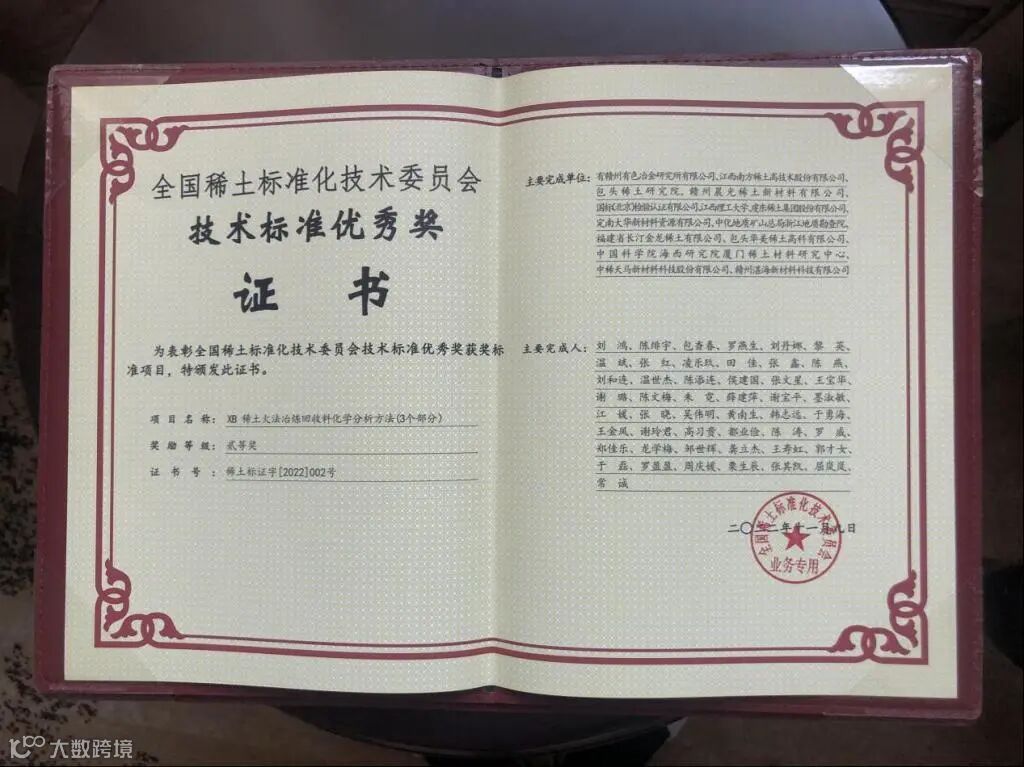 全国稀土标准化技术委员会
技术标准优秀奖
证 书
为表彰全国稀土标准化技术委员会技术标准优秀奖获奖标
准项目，特颁发此证书。
项 目 名 称： XB 稀土火法冶炼回收料化学分析方法(3个部分)
奖 励 等 级： 贰等奖
证 书 号： 稀土标证字[2022]002号
主要完成单位：有赣州有色冶金研究所有限公司、江西南方稀土高技术股份有限公司、
包头稀土研究院、赣州晨光稀土新材料有限公司、
国标(北京)检验认证有限公司、江西理工大学、虔东稀土集团股份有限公司、
定南大华新材料资源有限公司、中化地质矿山总局浙江地质勘查院、
福建省长汀金龙稀土有限公司、包头华美稀土高科有限公司、
中国科学院海西研究院厦门稀土材料研究中心、
中稀天马新材料科技股份有限公司、赣州湛海新材料科技有限公司
主要完成人：刘 鸿、陈绯宇、包香春、罗燕生、刘丹娜、黎 英、
温 斌、张 红、凌乐玖、田 佳、张 鑫、陈 燕、
刘和连、温世杰、陈添连、侯建国、张文星、王宝华、
谢 璐、陈文梅、朱 霓、薛建萍、谢宝平、墨淑敏、
江 媛、张 晓、吴伟明、黄南生、韩志远、于勇海、
王金凤、谢玲君、高习贵、都业俭、陈 涛、罗 威、
郑佳乐、龙学梅、邹世辉、龚立杰、王寿虹、郭才女、
于 磊、罗盈盈、周庆媛、栗生辰、张其凯、屈岚岚、
常 诚
二〇二二年十一月九日
全国稀土标准化技术委员会
业务专用
大数跨境